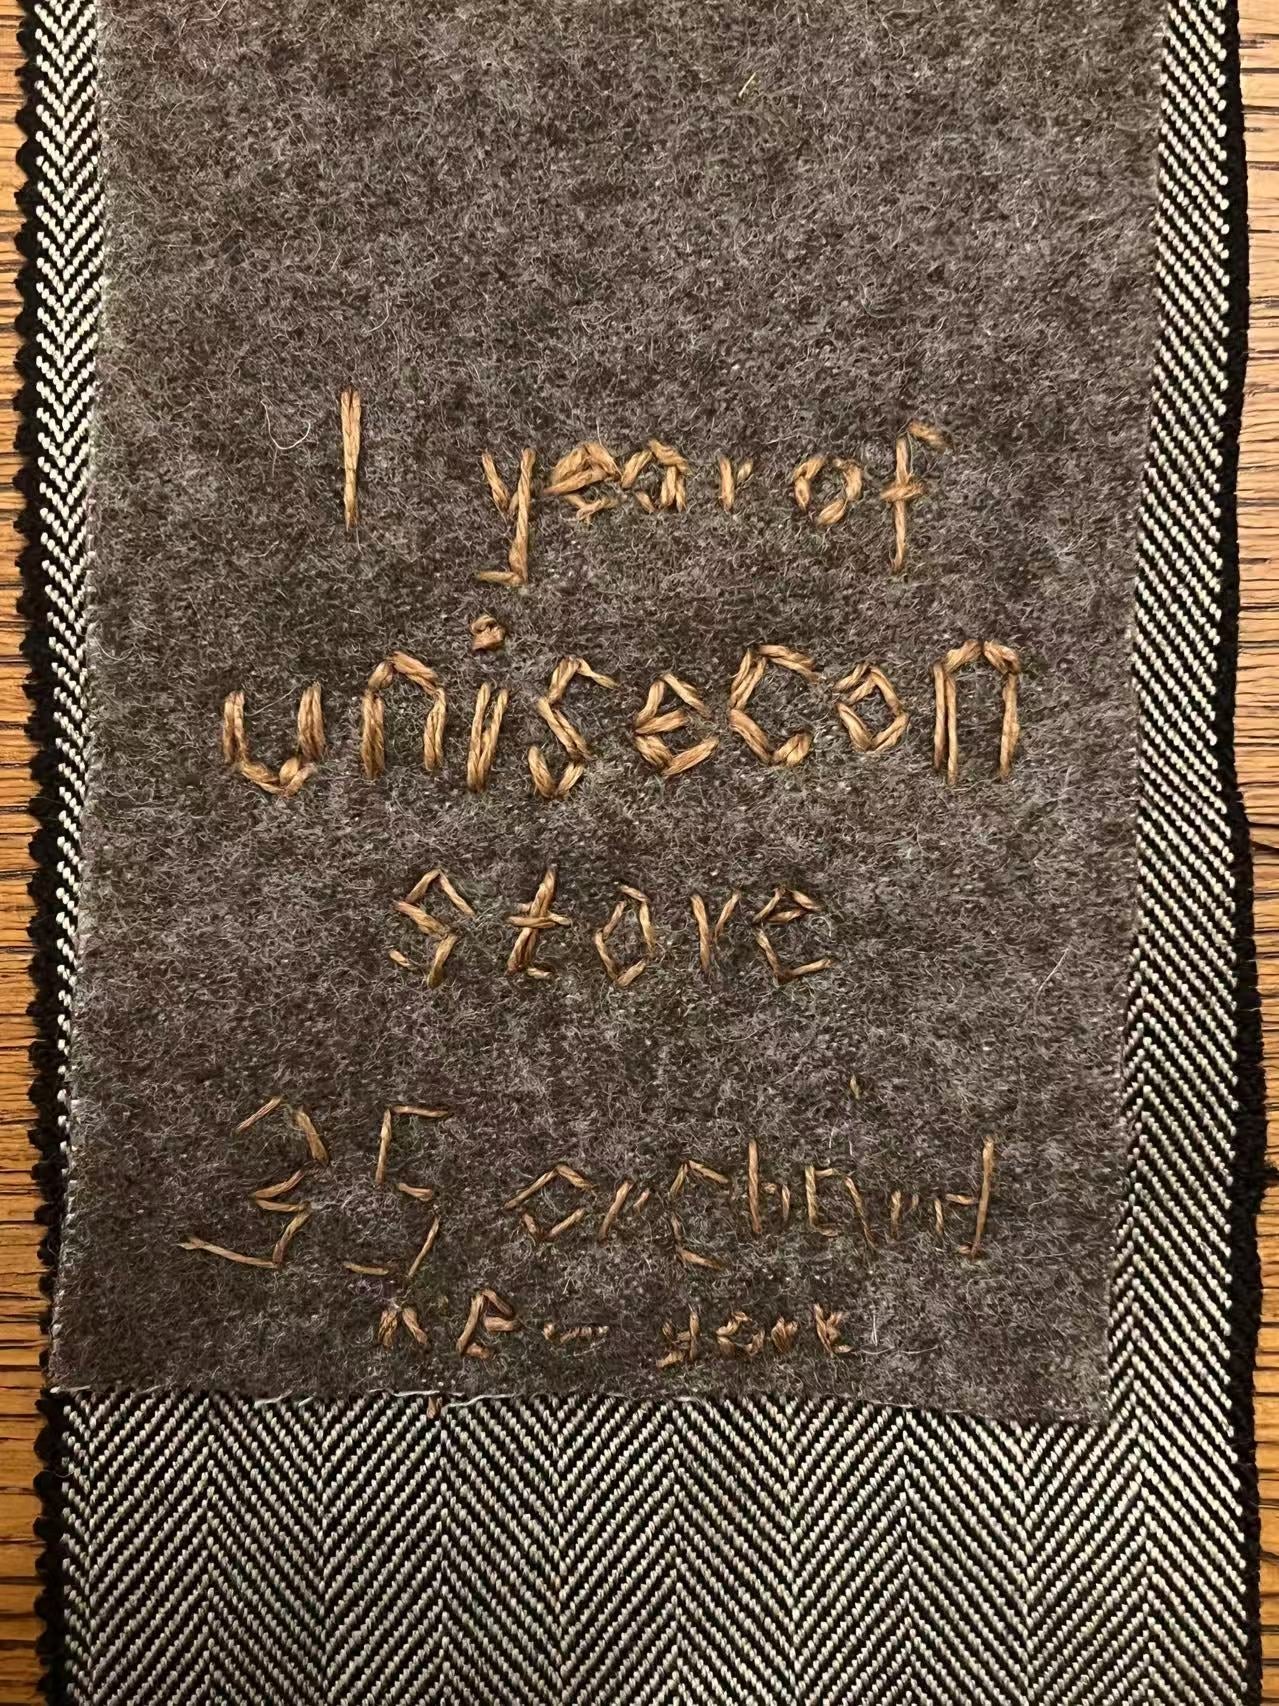 1 year of
unisecon
store
35 orchard
new york